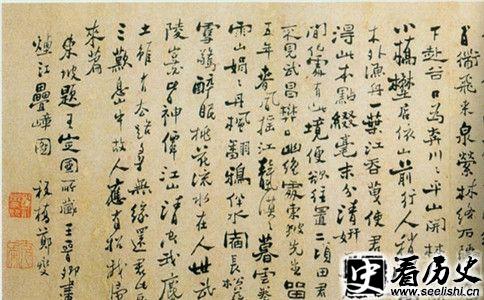 百衜飛来泉縈林络石
下赴谷口為奔川=平山開林
小橋埜店依山前行人稍
木外漁舟一葉江吞使君
得此本點綴毫末分清妍
间何處有此境便欲往置二頃田君
不見武昌樊口幽絶處東坡先生留
五年春風摇江天漠=暮雲卷
雨山娟=丹楓翻鴉伴水宿長松落
雪驚醉眠桃花流水在人世武
陵豈必皆神僊江山清空我塵
土雖有去路尋無緣還君此畫
三歎息山中故人應有招我歸
来篇
東坡題王定國所藏王晋卿畫
煙江疊嶂圖 板橋鄭燮
史 看历史
www.seelishi.cn